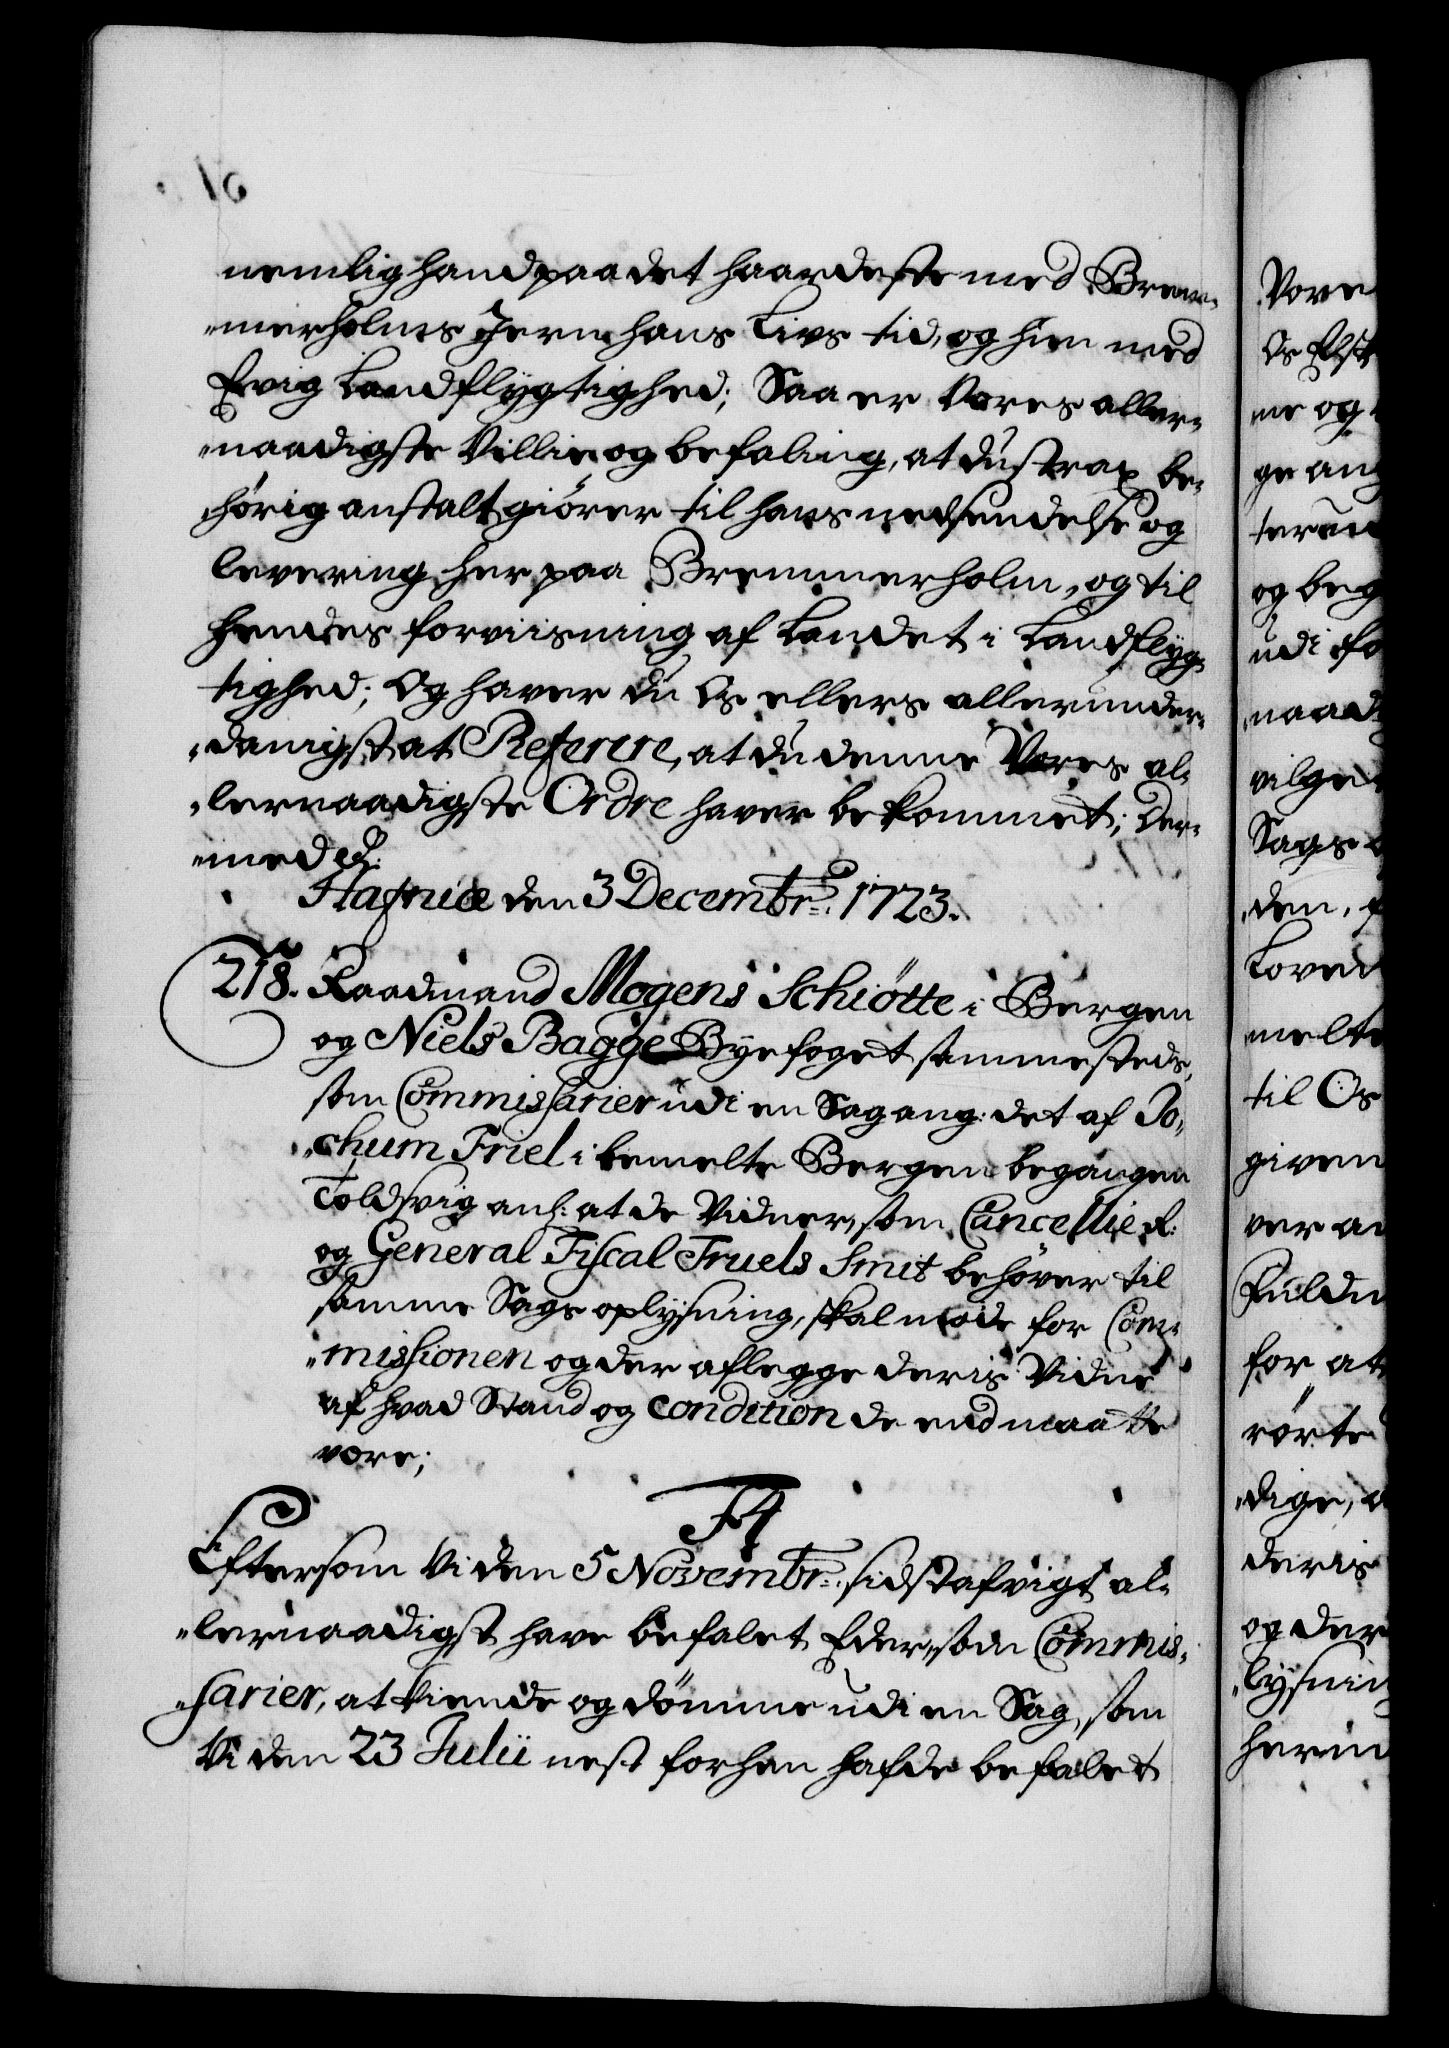 nemlig hand paa det haardeste med Brem¬
„merholms Jern hans Livs tid, og hun med
Evig Landflygtighed; Saa er Vores aller„
„naadigste Villie og befaling, at du strax be„
„hörig anstalt giörer til hans nedsendelse og
levering her paa Bremmerholm, og til
hendes forviisning af Landet i Landflyg„
tighed; Og haver du Os ellers allerunder„
„danigst at Referere, at du denne Vores al„
„lernaadigste Ordre haver bekommet; Der„
„med etc:
Hafniæ den 3 Decembr: 1723.
218. Raadmand Mogens Schiötte i Bergen
og Niels Bagge Byefoget sammesteds,
som Commissarier udi en Sag ang: det af Jo„
„chum Friel i bemelte Bergen begangen
Toldsvig anl: at de Vidner, som Cancellie R:
og General Fiscal Truels Smit behöver til
samme Sags oplysning, skal möde for Com„
„missionen og der aflegge deris Vidne
af hvad Stand og condition de end maatte
være;
F4
Eftersom Vi den 5 Novembr: sidstafvigt al„
„lernaadigst have befalet Eder, som Commis„
„sarier, at kiende og dömme udi en Sag, som
Vi den 23 Julii nest forhen hafde befalet
Vore
Os Efst
me og
ge ang
terne
og beg
udi fo
naad
vilge
Sags
den,
Loven
melte
til Os
given
ver an
Fuldm
for at
rörte
dige, a
deris
og der
lysning
herin